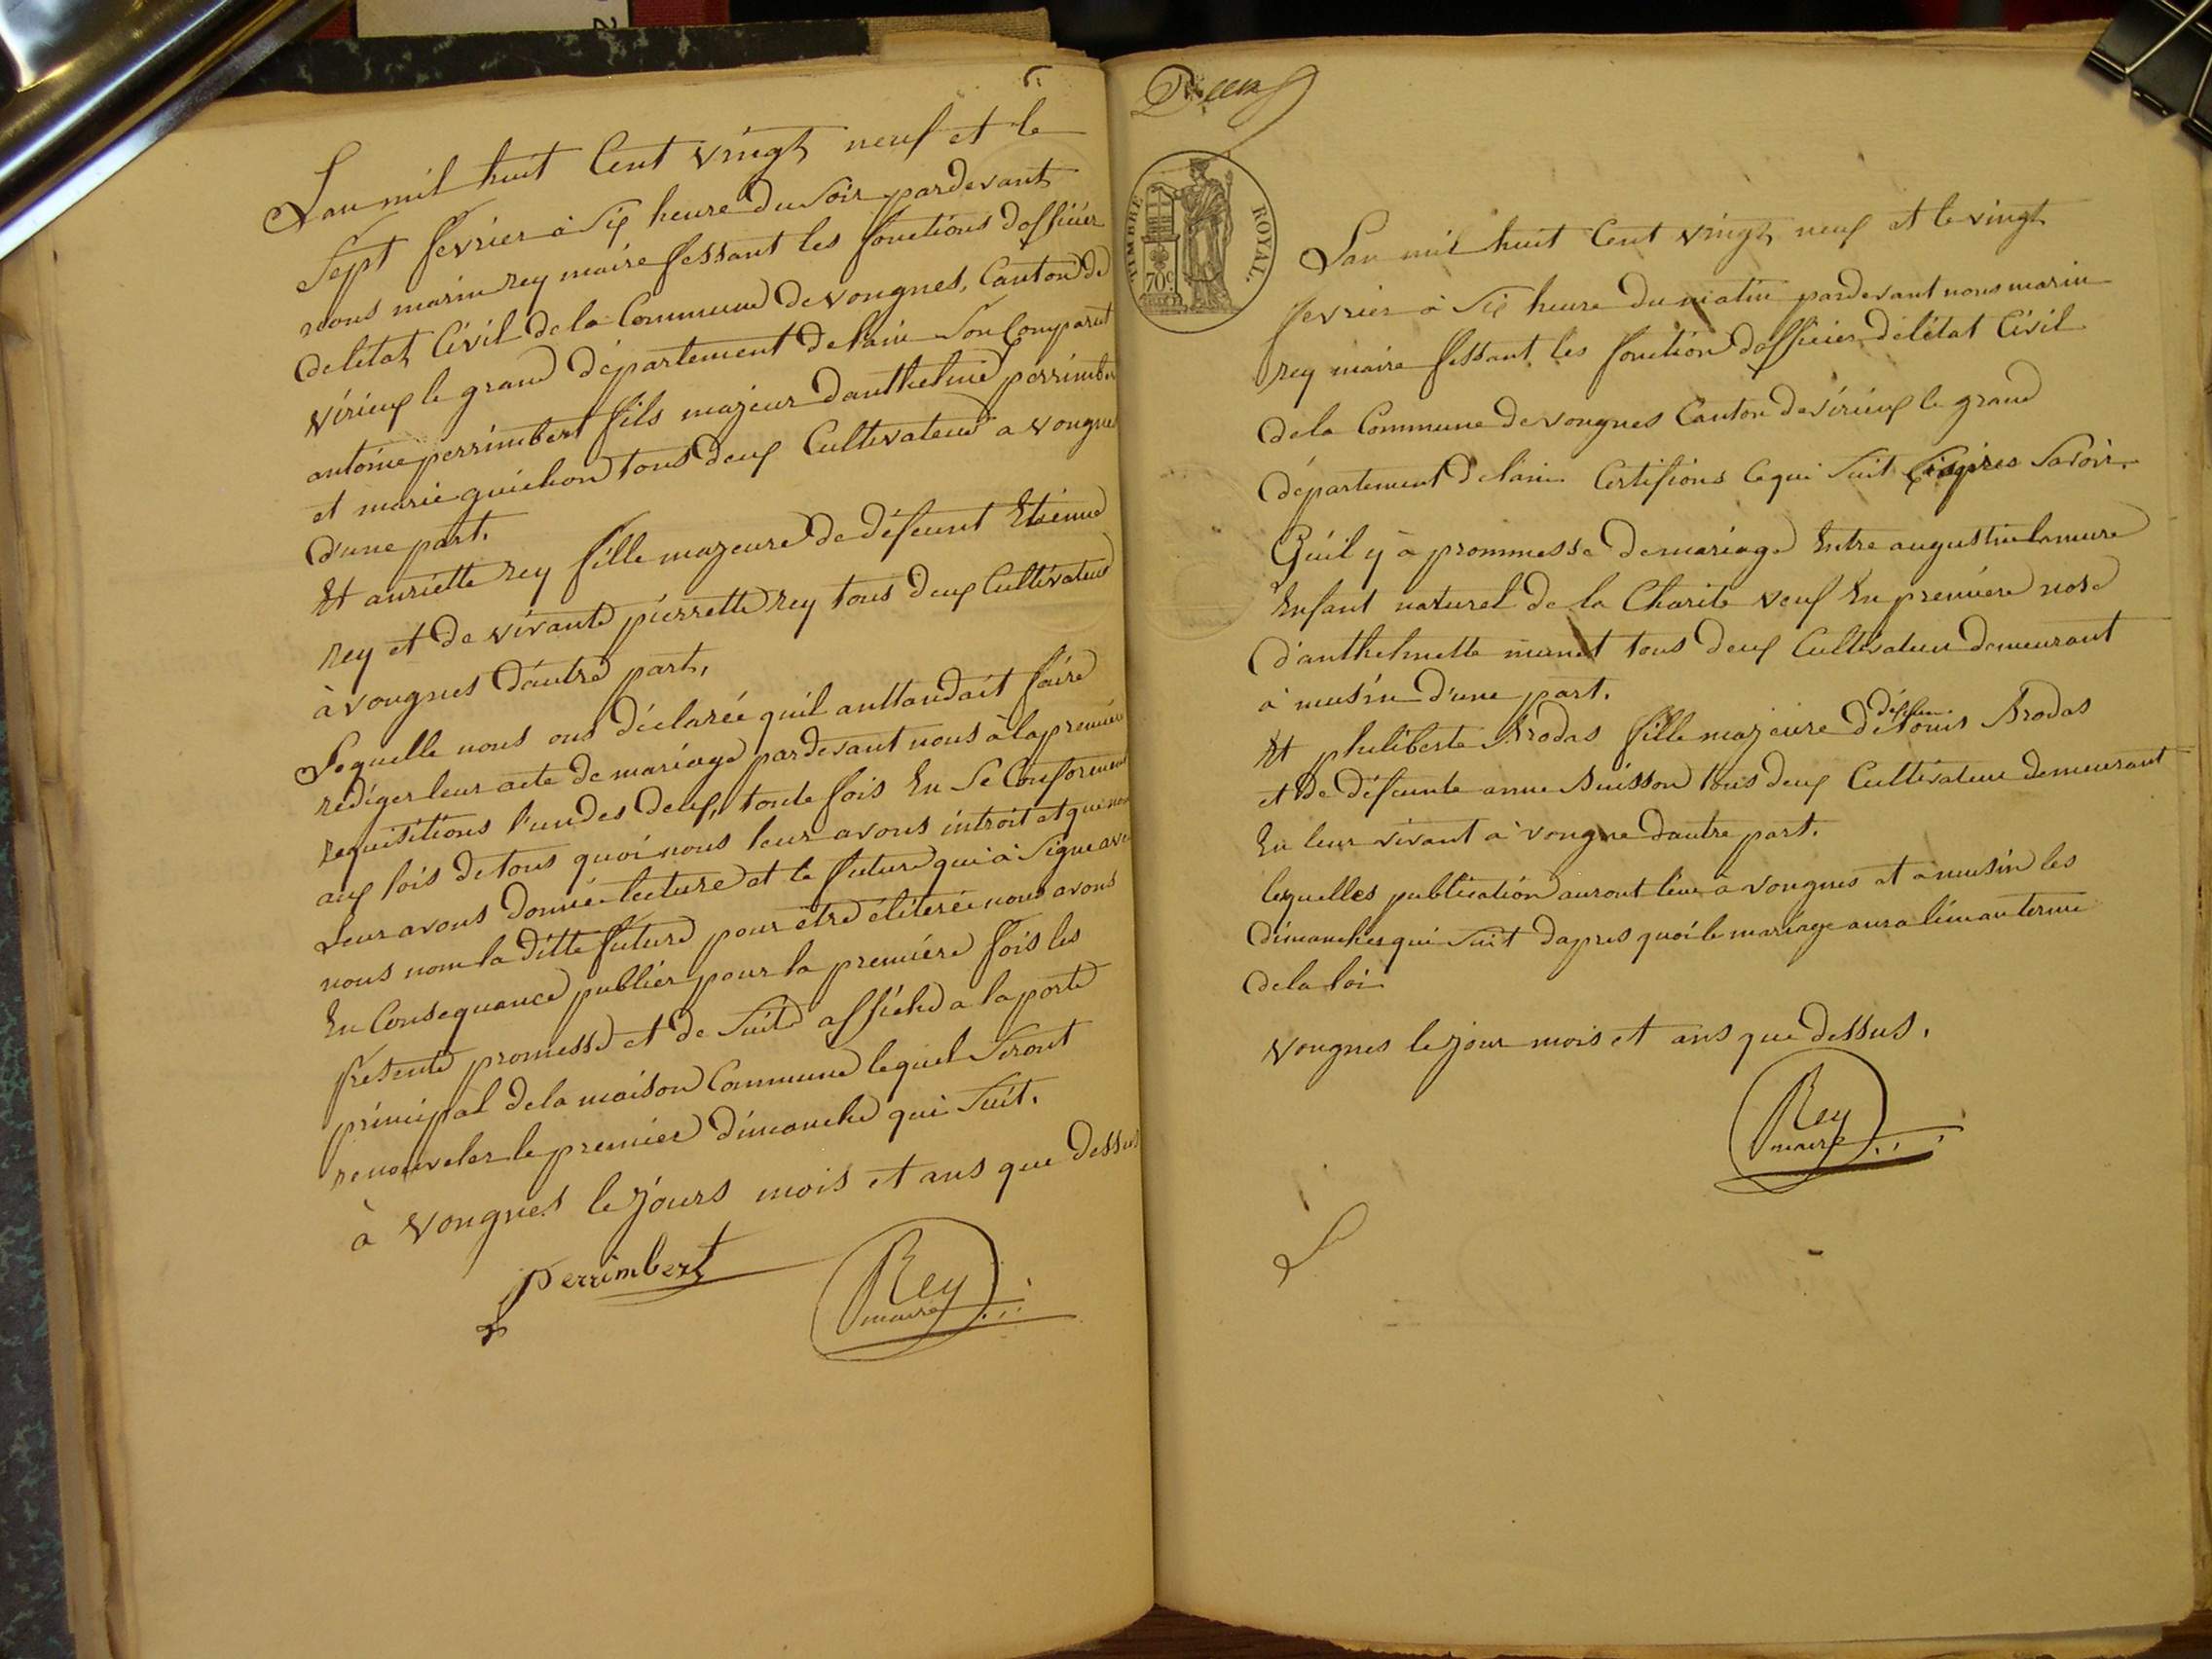 Lan mil huit Cent vingt neuf et le
Sept fevrier à Six heure du Soir pardevant
nous marin rey maire fessant les fonctions dofficier
deletat Civil dela Commune de vongnes, Canton de
Virieux le grand département delain Son Comparut
antoine perrimbert fils majeur danthelme perrimber
et marie guichon tous deux Cultivateur a vongnes
d'une part.
Et anriette rey fille majeure de défeunt Etienne
rey et de vivante pierrette rey tous deux Cultivateur
à vongnes d'autre part,
Lequelle nous ons déclarée quil anttandait faire
rédiger leur acte de mariage pardevant nous à la premiere
requisitions l'un des deux, toute fois En Se Conforment
aux lois de tous quoi nous leur avons introit et que nou
Leur avons donnée lecture et le future qui à Signe avec
nous nom la ditte future pour être éliterée nous avons
En Consequance publier pour la première fois les
présente promesse et de Suite affiche a la porte
principal dela maison Commune lequel Seront
renouveler le premier dimanche qui Suit.
à vongnes le jours mois et ans que dessus
Perrimbert
Rey
maire
Deux
TIMBRE ROYAL.
70c.
Lan mil huit Cent vingt neuf et le vingt
fevrier à Six heure du matin pardevant nous marin
rey maire fessant les fonction dofficier deletat Civil
dela Commune de vongnes Canton de virieux le grand
département delain Certifions Ce qui Suit Ciapres Savoir.
Quil y à prommesse demariage Entre augustin lamure
Enfant naturel de la Charite veuf En première nose
d'anthelmette tous deux Cultivateur demeurant
à musin d'une part.
défeun
Et philiberte Brodas fille majeure de louis Brodas
et De défeunte anne Buisson tous deux Cultivateur demeurant
En leur vivant à vongne dautre part.
lequelles publication auront lieu à vongnes et à musin les
dimanches qui Suit dapres quoi le mariage aura lieu au terme
dela loi
vongnes le jour mois et ans que dessus.
Rey
maire